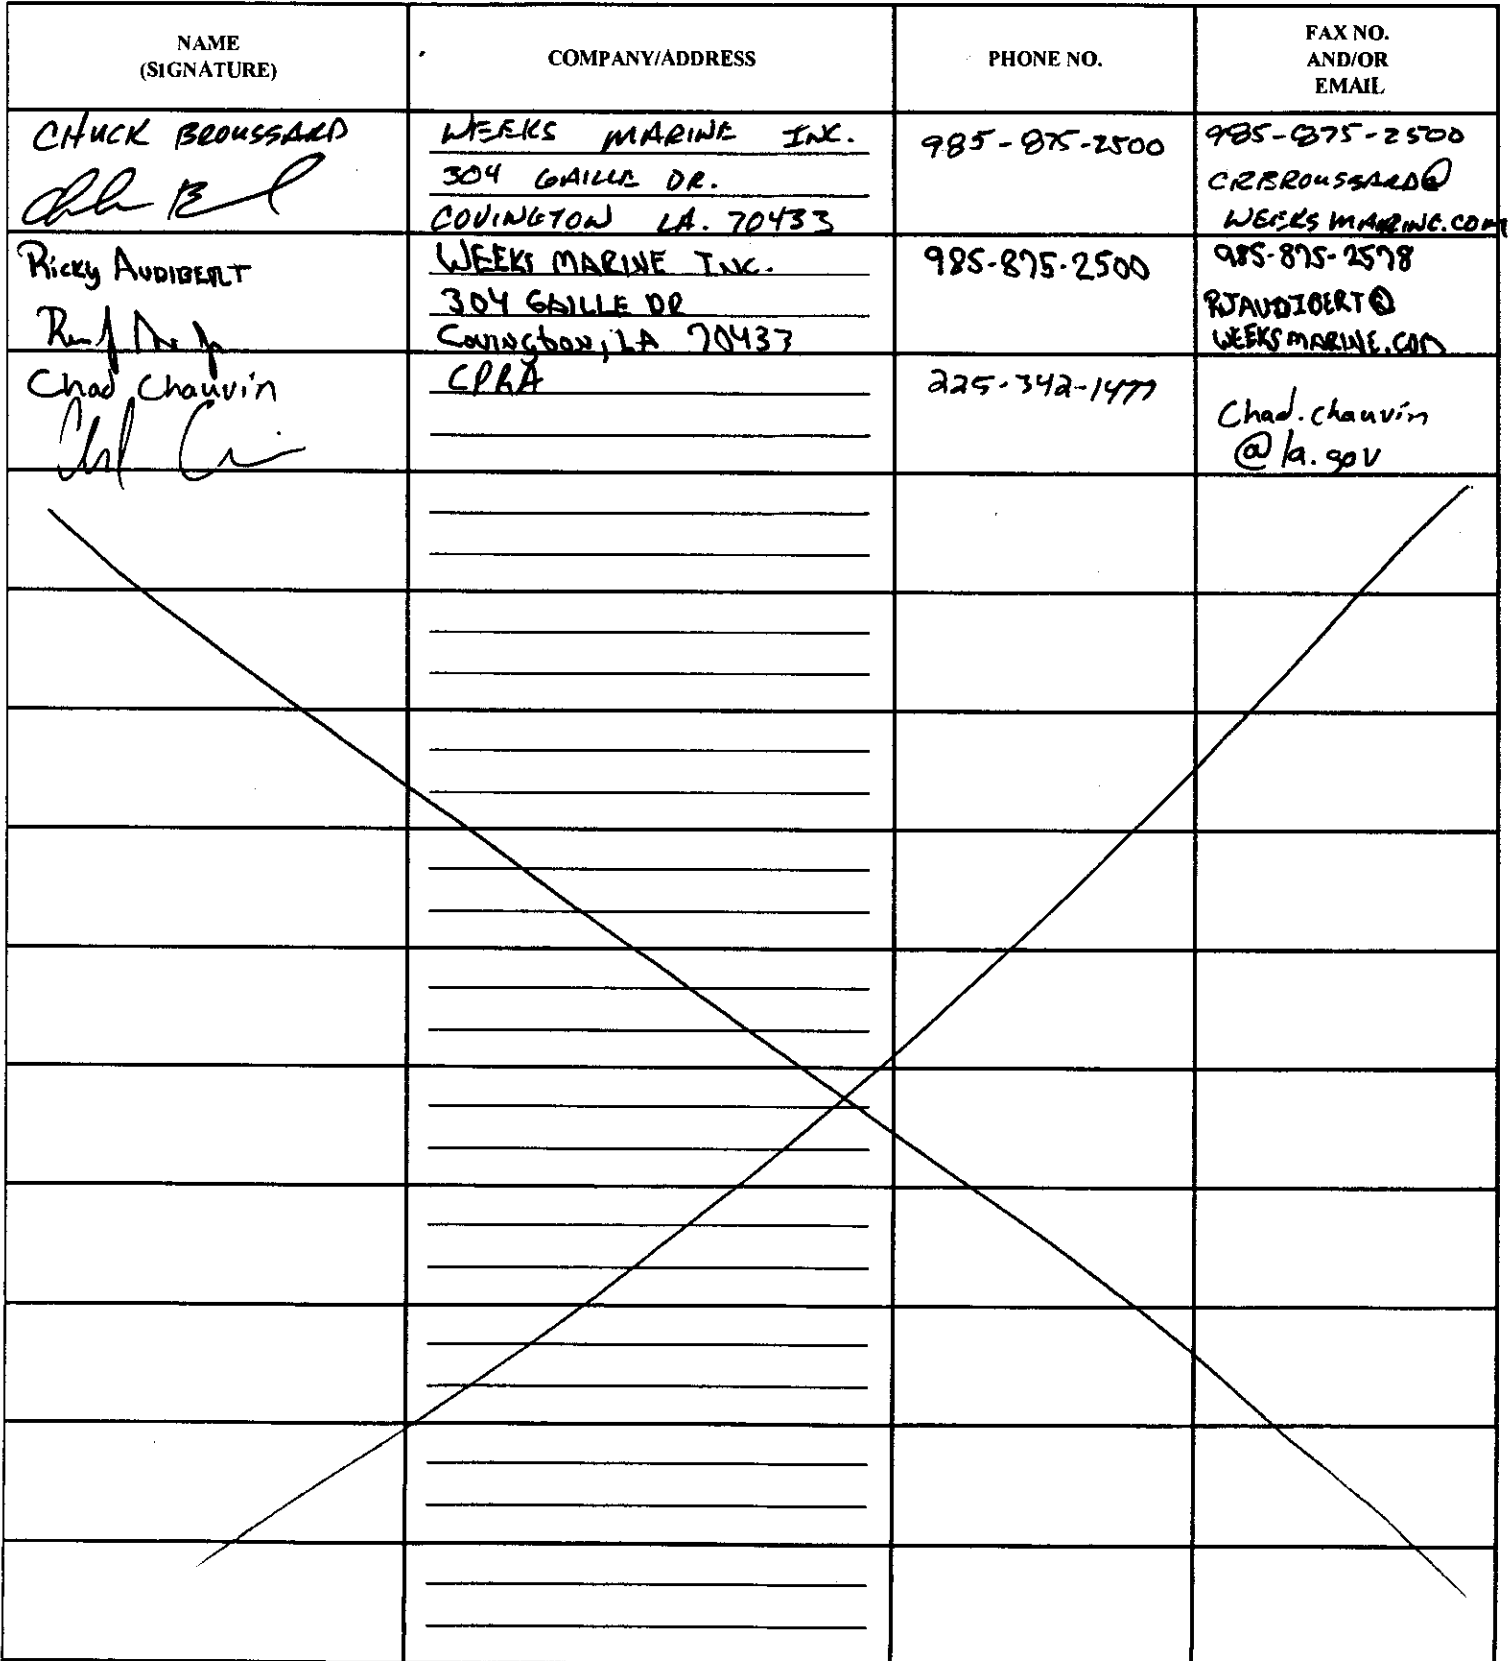 NAME
(SIGNATURE)
COMPANY/ADDRESS
PHONE NO.
FAX NO.
AND/OR
EMAIL
CHUCK BROUSSARD
WEEKS MARINE INC.
304 GAILLE DR.
COVINGTON LA. 70433
985-875-2500
985-875-2500
CRBROUSSARD@
WEEKSMARINE.COM
Ricky AUDIBERT
WEEKS MARINE INC.
304 GAILLE DR
Covington, LA 70433
985-875-2500
985-875-2578
RJAUDIBERT@
WEEKSMARINE.COM
Chad Chauvin
CPRA
225-342-1477
Chad.chauvin
@la.gov